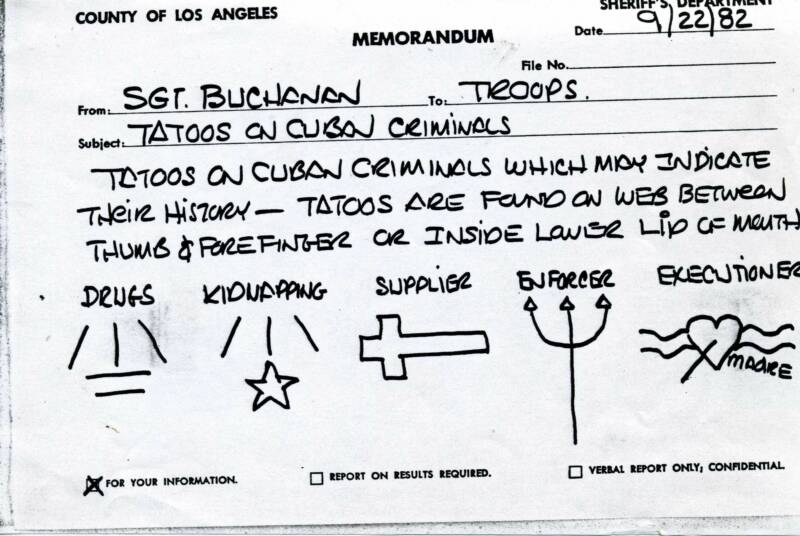 COUNTY OF LOS ANGELES
SHERIFF'S DEPARTMENT
MEMORANDUM
Date 9/22/82
File No.
From: SGT. BUCHANAN To: TROOPS.
Subject: TATOOS ON CUBAN CRIMINALS
TATOOS ON CUBAN CRIMINALS WHICH MAY INDICATE
THEIR HISTORY — TATOOS ARE FOUND ON WEB BETWEEN
THUMB & FOREFINGER OR INSIDE LOWER LIP OF MOUTH
DRUGS KIDNAPPING SUPPLIER ENFORCER EXECUTIONER
MADRE
FOR YOUR INFORMATION. REPORT ON RESULTS REQUIRED. VERBAL REPORT ONLY; CONFIDENTIAL.